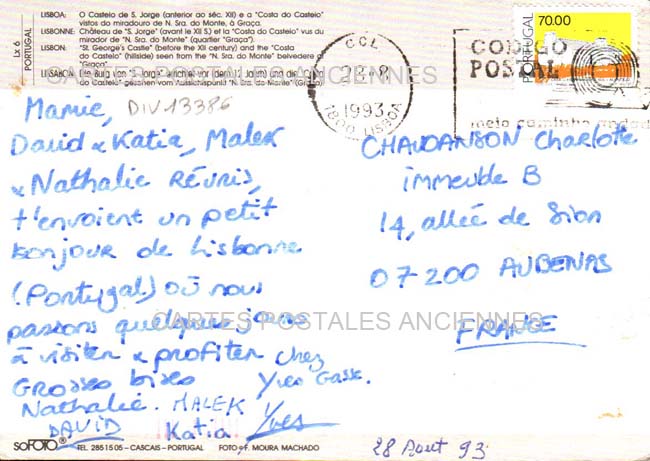 Lx 6
PORTUGAL
LISBOA: O Castelo de S. Jorge (anterior ao séc. XII) e a "Costa do Castelo"
vistos do miradouro de N. Sra. do Monte, à Graça.
LISBONNE: Château de "S. Jorge" (avant le XII S.) et la "Costa do Castelo" vus du
mirador de N. Sra. do Monte" (quartier "Graça").
LISBON: "St. George's Castle" (before the XII century) and the "Costa
do Castelo" (hillside) seen from the "N. Sra. do Monte" belvedere
"Graça".
CARTES POSTALES ANCIENNES
CCL
1993
1800 LISBOA
CODIGO
POSTAL
meio caminho andado
70.00
PORTUGAL
DIV13386
Mamie,
David & Katia, Malek
& Nathalie
t'envoient un petit
bonjour de Lisbonne
(Portugal) où nous
passons quelques jours
à visiter & profiter chez
Grosses bises Yves Gasse.
Nathalie. MALEK
DAVID Katia Yves
CHAUDANSON Charlotte
immeuble B
14, allée de Sion
07200 AUBENAS
FRANCE
CARTES POSTALES ANCIENNES
SOFOTO® TEL. 285 15 05 - CASCAIS - PORTUGAL FOTO: F. MOURA MACHADO
28 Aout 93